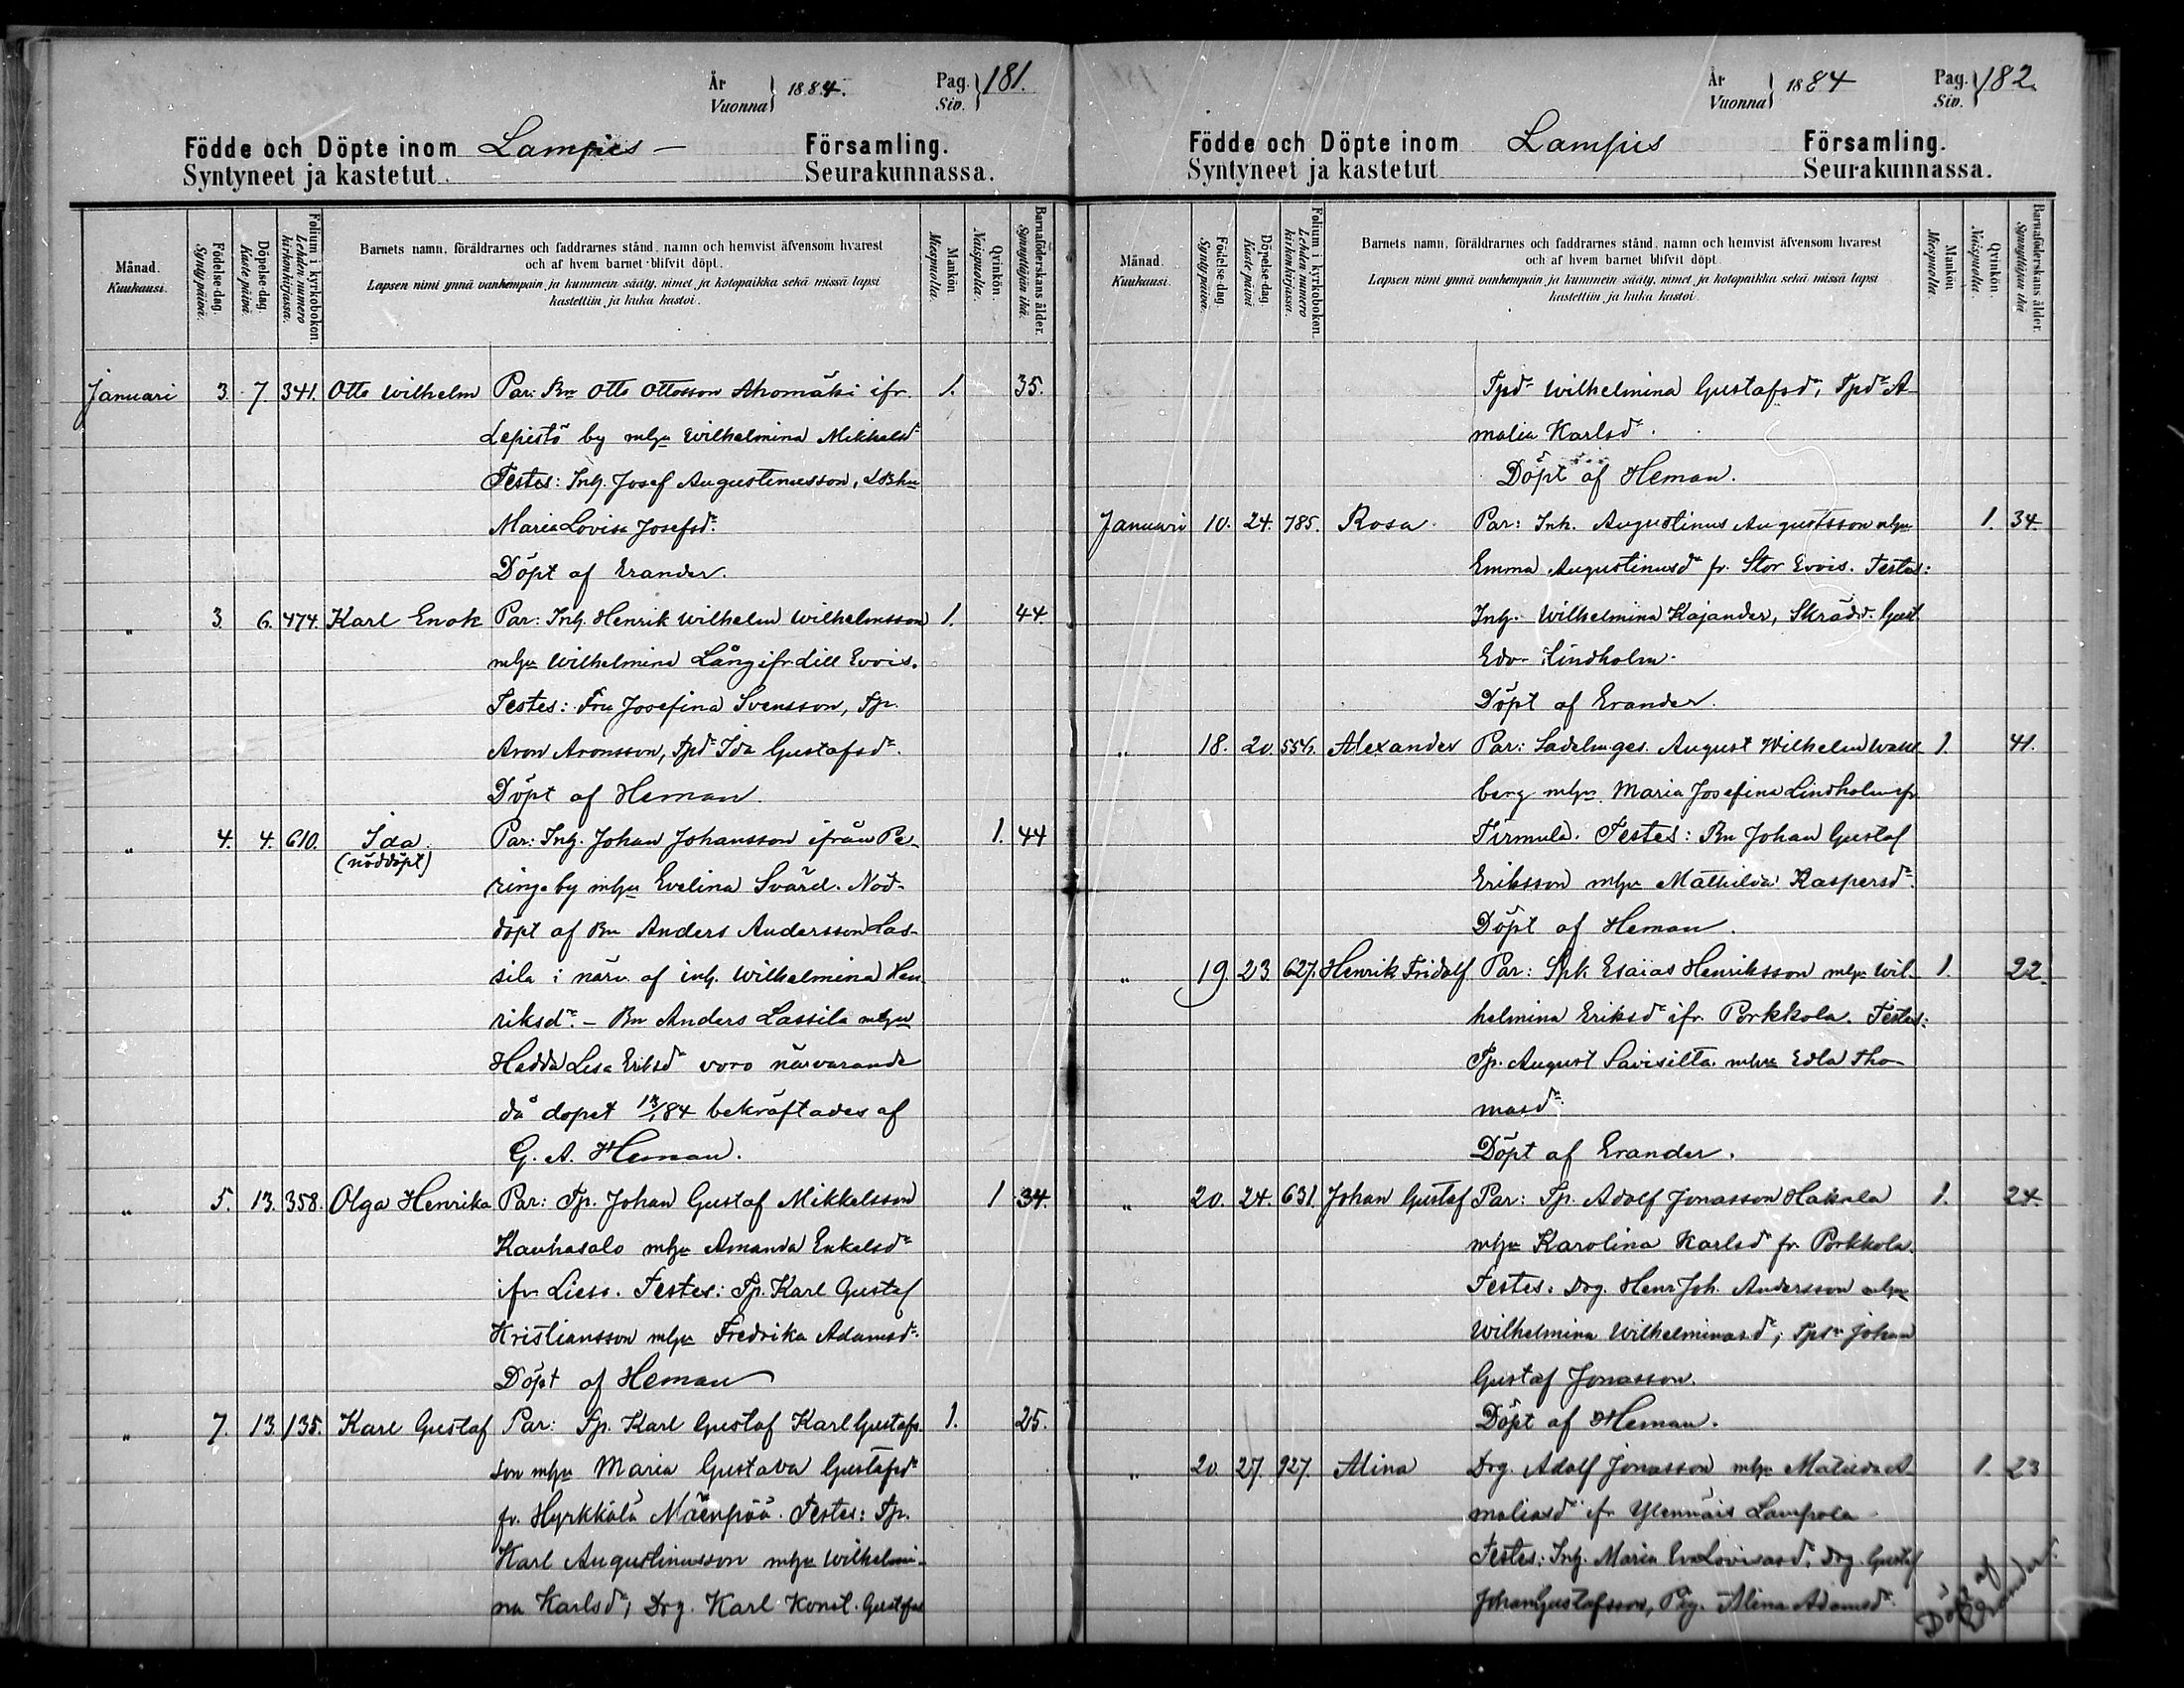 År
Vuonna } 1884.
Pag.
Siv. } 181.
Födde och Döpte inom Lampis Församling.
Syntyneet ja kastetut Seurakunnassa.
Månad.
Kuukausi.
Födelse-dag.
Syntypäivä.
Döpelse-dag.
Kastepäivä.
Folium i kyrkoboken.
Lehden numero
kirkonkirjassa.
Barnets namn, föräldrarnes och faddrarnes stånd, namn och hemvist äfvensom hvarest
och af hvem barnet blifvit döpt.
Lapsen nimi ynnä vanhempain ja kummein sääty, nimet ja kotopaikka sekä missä lapsi
kastettiin ja kuka kastoi.
Mankön
Miespuolta.
Qvinkön.
Naispuolta.
Barnaföderskans ålder.
Synnyttäjän ikä.
Januari 3. 7 341. Otto Wilhelm Par: Bn Otto Ottosson Ahomäki ifr. 1. 35.
Lepistö by mhu Wilhelmina Mikkelsdr
Testes: Inh. Josef Augustinusson,
Maria Lovisa Josefsdr.
Döpt af Erander.
" 3 6. 474. Karl Enok Par: Inh. Henrik Wilhelm Wilhelmsson 1. 44
mhu Wilhelmina Lång ifr Lill Evois.
Testes: Fru Josefina Svensson, Tp.
Aron Aronsson, Tpdr Ida Gustafsdr.
Döpt af Heman.
" 4. 4. 610. Ida Par: Inh. Johan Johansson ifrån Pe- 1. 44
(nöddöpt)
ringe by mhu Evelina Svärd. Nöd-
döpt af Bn Anders Andersson Las-
sila i närv. af inh. Wilhelmina Hen-
riksdr. - Bn Anders Lassila mhu
Hedda Lisa Eriksdr voro närvarande
då dopet 13/1 84 bekräftades af
G. A. Heman.
" 5. 13. 358. Olga Henrika Par: Tp. Johan Gustaf Mikkelsson 1 34.
Kauhasalo mhu Amanda Enkelsdr
ifr Lieso. Testes: Tp. Karl Gustaf
Kristiansson mhu Fredrika Adamsdr.
Döpt af Heman
" 7. 13. 135. Karl Gustaf Par: Tp. Karl Gustaf Karl Gustafs- 1. 25.
son mhu Maria Gustava Gustafsdr
fr. Hyrkkälä Mäenpää. Testes: Tp.
Karl Augustinusson mhu Wilhelmi-
na Karlsdr, Drg. Karl Konst. Gustafss
År
Vuonna } 1884
Pag.
Siv. } 182.
Födde och Döpte inom Lampis Församling.
Syntyneet ja kastetut Seurakunnassa.
Månad.
Kuukausi.
Födelse-dag.
Syntypäivä.
Döpelse-dag.
Kastepäivä
Folium i kyrkoboken.
Lehden numero
kirkonkirjassa.
Barnets namn, föräldrarnes och faddrarnes stånd, namn och hemvist äfvensom hvarest
och af hvem barnet blifvit döpt.
Lapsen nimi ynnä vanhempain ja kummein sääty, nimet ja kotopaikka sekä missä lapsi
kastettiin ja kuka kastoi.
Mankön
Miespuolta
Qvinkön.
Naispuolta.
Barnaföderskans ålder.
Synnyttäjän ikä
Tpdr Wilhelmina Gustafsdr, Tpdr A-
malia Karlsdr.
Döpt af Heman.
Januari 10. 24. 785. Rosa Par: Inh. Augustinus Augustsson mhu 1. 34.
Emma Augustinusdr fr. Stor Evois. Testes:
Inh. Wilhelmina Kajander, Skrädd. Gust.
Edv. Lindholm.
Döpt af Erander.
" 18. 20. 554. Alexander Par: Sadelm.ges. August Wilhelm Wahl- 1. 41.
berg mhu Maria Josefina Lindholm fr.
Tirmula. Testes: Bn Johan Gustaf
Eriksson mhu Mathilda Kaspersdr.
Döpt af Heman.
" 19. 23. 627. Henrik Fridolf Par: Spk. Esaias Henriksson mhu Wil- 1. 22.
helmina Eriksdr ifr. Porkkola. Testes:
Tp. August Savisilta mhu Edla Tho-
masdr.
Döpt af Erander.
" 20. 24. 631. Johan Gustaf Par: Tp. Adolf Jonasson Hakala 1. 24.
mhu Karolina Karlsdr fr. Porkkola.
Testes: Drg. Henr Joh. Andersson mhu
Wilhelmina Wilhelminasdr, Tpsn Johan
Gustaf Jonasson.
Döpt af Heman.
" 20. 27. 927. Alina Drg. Adolf Jonasson mhu Matilda A- 1. 23
maliasdr ifr Ylennäis Lampola
Testes: Inh. Maria Eva Lovisasdr, Drg. Gustaf
Johan Gustafsson, Pig. Alina Adamsdr.
Döpt af
Erander.